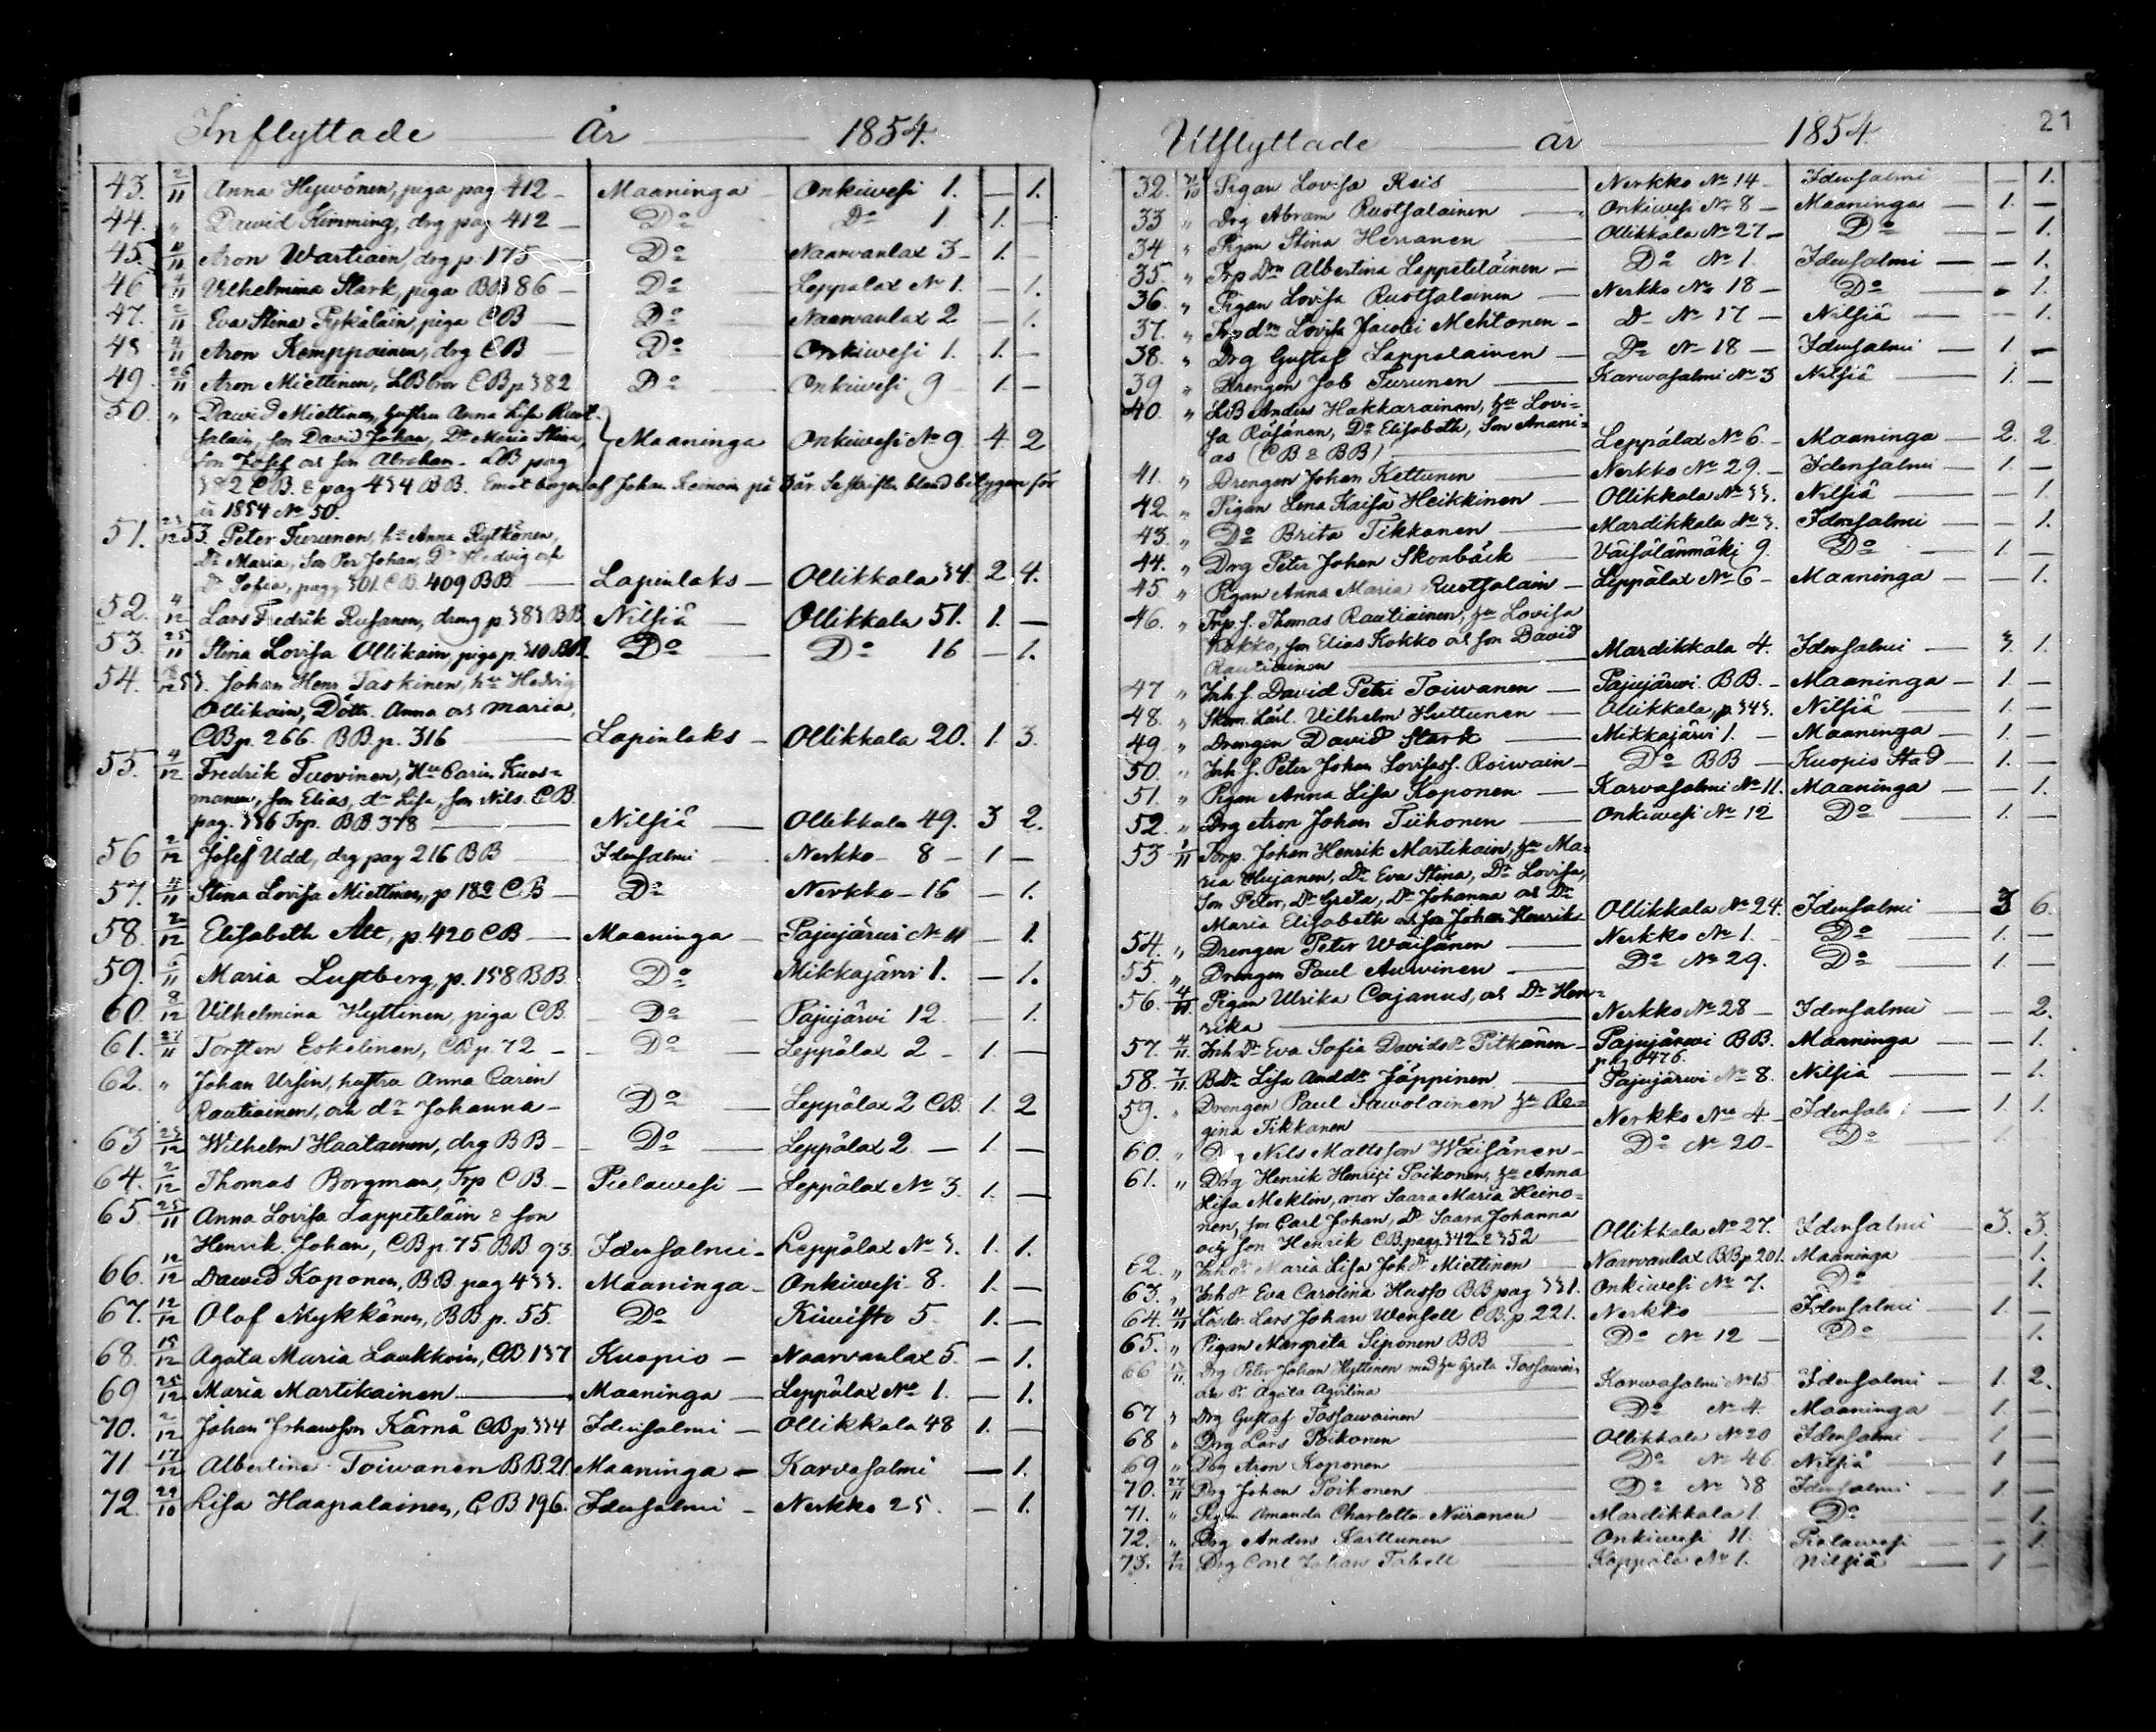 Inflyttade År 1854.
43. 2/11 Anna Hyvönen, piga pag 412 — Maaninga Onkiwesi 1. — 1.
44. " Dawid Kimming, drg pag 412 — Do Do 1 1. —
45. 11/11 Aron Wartiain, drg p. 175 — Do Naarvanlax 3 — 1. —
46 4/11 Vilhelmina Stark, piga BB 86 — Do Leppälax No 1. — 1.
47. 2/11 Eva Stina Pykäläin, piga CB — Do Naarvanlax 2 — 1.
48 4/11 Aron Kemppainen, drg CB — Do Onkiwesi 1. 1. —
49 26/11 Aron Miettinen, LB bror CB p 382 Do Onkiwesi 9 1. —
50. " Dawid Miettinen, hustru Anna Lisa Ruot-
salain, son David Johan, Dr Maria Stina, Maaninga Onkiwesi No 9. 4 2
son Josef och son Abraham — LB pag
382 CB. & pag 434 BB. Emot borgen af Johan Reinoin på 3 år. Se skriften bland bilaggen för
år 1854 No 50.
51. 23/12 53. Peter Turunen, hu Anna Rytkönen,
Dr Maria, Son Per Johan, Dr Hedvig och
Dr Sofia, pagg 301. CB. 409 BB — Lapinlaks — Ollikkala 34. 2. 4.
52. 4/12 Lars Fredrik Rusanen, dreng p 383 BB Nilsiä — Ollikkala 51. 1. —
53. 25/11 Stina Lovisa Ollikain, piga p. 310 BB. Do — Do 16 — 1.
54. 18/12 53. Johan Henr. Taskinen, hu Hedvig
Ollikain, Döttr. Anna och Maria,
CB p. 266. BB. p. 316 — Lapinlaks — Ollikkala 20. 1. 3.
55. 4/12 Fredrik Tuovinen, Hu Carin Kuos-
manen, son Elias, dr Lisa, son Nils. CB
pag. 336 Trp. BB. 378 — Nilsiä — Ollikkala 49. 3 2.
56 2/12 Josef Udd, drg pag 216 BB — Idensalmi — Nerkko — 8 — 1 —
57. 4/11 Stina Lovisa Miettinen, p 182 C.B — Do Nerkko — 16 — 1.
58. 2/12 Elisabeth Alt, p. 420 CB — Maaninga — Pajujärvi No 11 — 1.
59. 6/11 Maria Luftberg, p. 158 BB Do Mikkajärvi 1. — 1.
60. 8/12 Vilhelmina Hyttinen, piga CB. — Do — Pajujärvi 12 — 1.
61. 27/11 Torsten Eskelinen, CB p. 72 — Do — Leppälax 2 — 1. —
62. " Johan Ursin, hustru Anna Carin
Rautiainen, och dr Johanna — Do — Leppälax 2 CB. 1. 2
63 23/12 Wilhelm Haatainen, drg BB — Do — Leppälax 2. — 1. —
64. 2/12 Thomas Borgman, Trp C B. — Pielavesi — Leppälax No 3. 1. —
65. 25/11 Anna Lovisa Lappeteläin & son
Henrik Johan, CB p. 75 BB 93. Idensalmi — Leppälax No 3. 1. 1.
66. 12/12 Dawid Koponen, BB pag 433. Maaninga — Onkiwesi 8. 1. —
67. 12/12 Olof Mykkänen, BB p. 55. Do Kiwistö 5. 1. —
68. 15/12 Agata Maria Laukkain, CB 137 Kuopio — Naarvanlax 5. — 1.
69 25/12 Maria Martikainen — Maaninga — Leppälax No 1. — 1.
70. 2/12 Johan Johansson Kärnå CB p 334 Idensalmi — Ollikkala 48 1. —
71 17/12 Albertina Toiwanen BB. 21 Maaninga — Karvasalmi — 1.
72. 29/10 Lisa Haapalainen, C B 196. Idensalmi — Nerkko 25. — 1.
Utflyttade år 1854. 21
32. 31/10 Pigan Lovisa Reis — Nerkko No 14 — Idensalmi — 1.
33 " Drg Abram Ruotsalainen — Onkiwesi No 8 — Maaninga — 1. —
34 " Pigan Stina Herranen — Ollikkala No 27 — Do — 1.
35. " Trp Drn Albertina Lappeteläinen — Do No 1. Idensalmi — 1.
36. " Pigan Lovisa Ruotsalainen — Nerkko No 18 — Do — 1.
37. " Trp drn Lovisa Jacobi Mehtonen — Do No 17 — Nilsiä — 1.
38. " Drg Gustaf Lappalainen — Do No 18 — Idensalmi — 1 —
39 " Drengen Job Turunen — Karwasalmi No 3 Nilsiä — 1. —
40. " LB Anders Hakkarainen, hu Lovi-
sa Räsänen, Dr Elisabeth, Son Anani-
as (CB & BB) — Leppälax No 6. — Maaninga — 2. 2
41. " Drengen Johan Kettunen — Nerkko No 29. — Idensalmi — 1. —
42. " Pigan Lena Kaisa Heikkinen — Ollikkala No 33. Nilsiä — 1.
43. " Do Brita Tikkanen — Mardikkala No 3. Idensalmi — 1.
44. " Drg Peter Johan Skonbäck — Väisälänmäki 9. Do — 1. —
45 " Pigan Anna Maria Ruotsalain — Leppälax No 6 — Maaninga — 1.
46. " Trp. s. Thomas Rautiainen, hu Lovisa
Kokko, son Elias Kokko och son David
Rautiainen — Mardikkala 4. Idensalmi — 3. 1.
47 " Inh. s. David Petri Toiwanen — Pajujärwi. BB. — Maaninga — 1. —
48. " Lärl. Vilhelm Huttunen — Ollikkala, p 343. Nilsiä — 1. —
49. " Drengen David Stark — Mikkajärvi 1. — Maaninga — 1. —
50. " Inh. s. Peter Johan Lovisas s. Roiwain — Do BB — Kuopio Stad — 1. —
51. " Pigan Anna Lisa Koponen — Karvasalmi No 11. Maaninga — 1.
52. " Drg Aron Johan Tiihonen — Onkiwesi No 12 Do — 1. —
53 1/11 Torp. Johan Henrik Martikain, hu Ma-
ria Hujanen, Dr Eva Stina, Dr Lovisa,
Son Peter, Dr Greta, Dr Johanna och Dr
Maria Elisabeth och son Johan Henrik — Ollikkala No 24. Idensalmi — 3 6.
54. " Drengen Peter Waisänen — Nerkko No 1. — Do — 1. —
55. " Drengen Paul Auvinen — Do No 29. Do — 1 —
56. 4/11 Pigan Ulrika Cajanus, och Dr Hen-
rika — Nerkko No 28 — Idensalmi — 2.
57. 4/11 Inh Dr Eva Sofia Davidsdr Pitkänen — Pajujärwi BB. Maaninga — 1.
pag 476.
58. 7/11 Lisa And dr Jäppinen — Pajujärwi No 8. Nilsiä — 1.
59. " Drengen Paul Sawolainen hu Re-
gina Tikkanen — Nerkko No 4 — Idensalmi 1 1.
60. " Nils Mattsson Waisänen — Do No 20 — Do — 1
61. " Drg Henrik Henrici Poikonen, hu Anna
Lisa Meklin, mor Saara Maria Heino-
nen, son Carl Johan, Dr Saara Johanna
och son Henrik CB. pagg 342 & 352 — Ollikkala No 27. Idensalmi — 3. 3.
62. " Inh dr Maria Lisa Joh dr Miettinen — Naarvanlax BB p 201. Maaninga — 1.
63. " Inh dr Eva Carolina Husso BB pag 331. Onkiwesi No 7. Do — 1.
64. 11/11 Lars Johan Wensell CB. p. 221. Nerkko Idensalmi — 1. —
65. " Pigan Margreta Siponen BB — Do No 12 — Do — 1.
66 17/11 Drg Peter Johan Hyttinen med hu Greta Tossawai-
Agata Agelina — Karwasalmi No 15 Idensalmi — 1. 2.
67 " Drg Gustaf Tossawainen — Do No 4. Maaninga — 1. —
68 " Drg Lars Poikonen — Ollikkala No 20 Idensalmi — 1 —
69 " Drg Aron Koponen — Do No 46 Nilsiä — 1 —
70. 27/11 Drg Johan Poikonen — Do No 38 Idensalmi — 1 —
71. " Pigan Amanda Charlotta Niiranen — Mardikkala 1. Do — 1.
72. " Drg Anders Karttunen — Onkiwesi 11. Pielawesi — 1.
73. Drg Carl Johan Tabell — Leppälä No 1. Nilsiä — 1 —